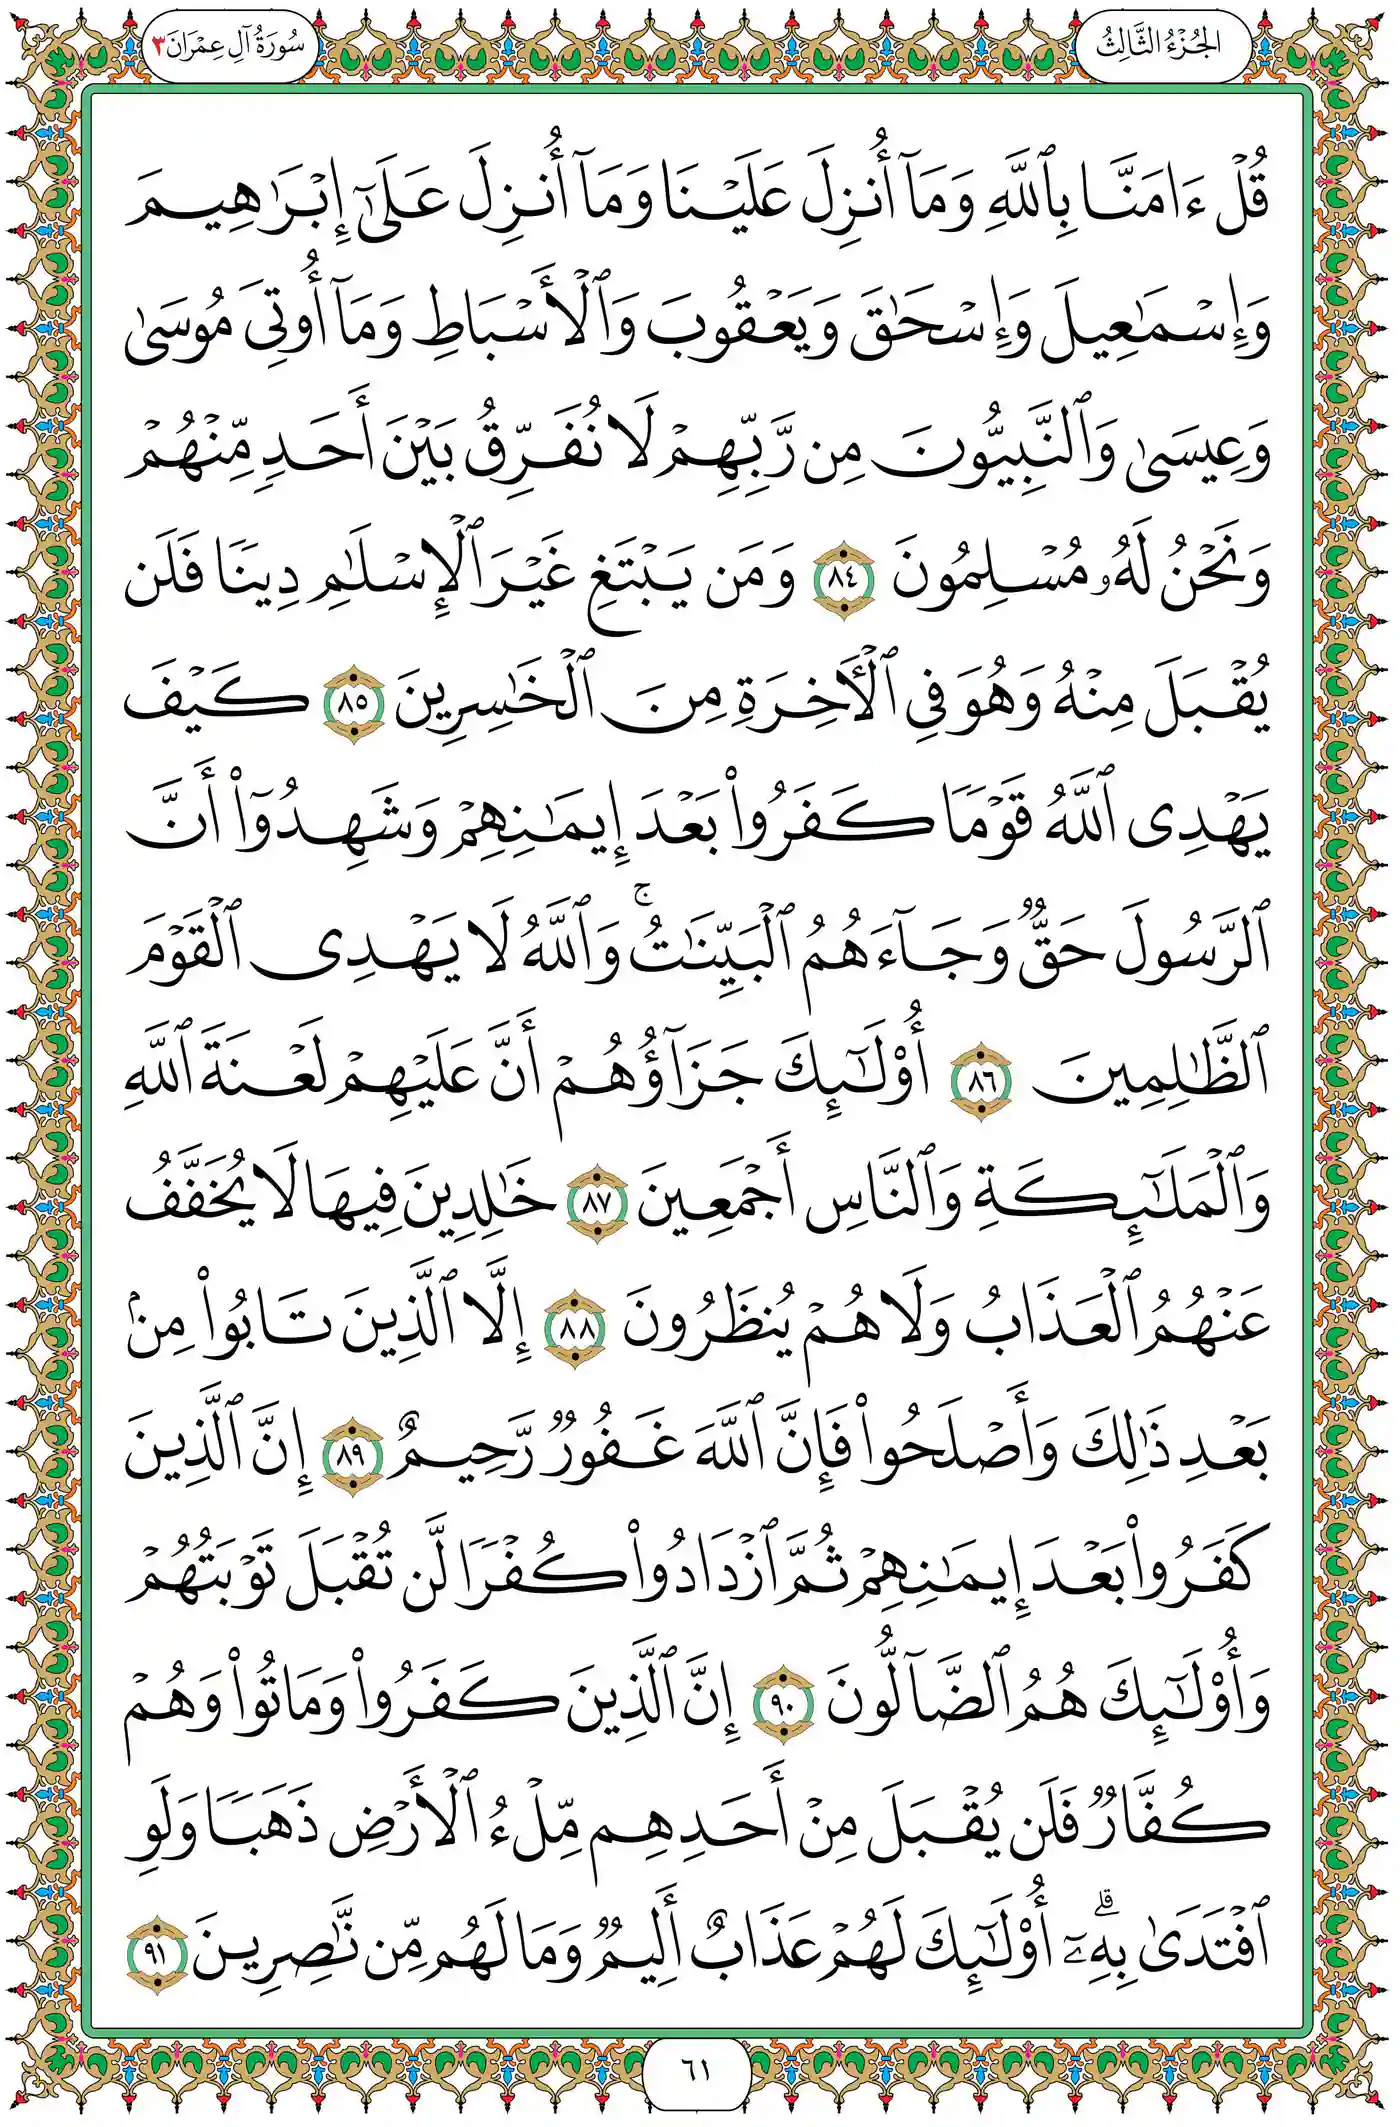 الجُزْءُ الثَّالِثُ
سُورَةُ آلِ عِمْرَانَ ٣
قُلْ ءَامَنَّا بِٱللَّهِ وَمَآ أُنزِلَ عَلَيْنَا وَمَآ أُنزِلَ عَلَىٰٓ إِبْرَٰهِيمَ
وَإِسْمَٰعِيلَ وَإِسْحَٰقَ وَيَعْقُوبَ وَٱلْأَسْبَاطِ وَمَآ أُوتِىَ مُوسَىٰ
وَعِيسَىٰ وَٱلنَّبِيُّونَ مِن رَّبِّهِمْ لَا نُفَرِّقُ بَيْنَ أَحَدٍ مِّنْهُمْ
وَنَحْنُ لَهُۥ مُسْلِمُونَ ٨٤ وَمَن يَبْتَغِ غَيْرَ ٱلْإِسْلَٰمِ دِينًا فَلَن
يُقْبَلَ مِنْهُ وَهُوَ فِى ٱلْأَخِرَةِ مِنَ ٱلْخَٰسِرِينَ ٨٥ كَيْفَ
يَهْدِى ٱللَّهُ قَوْمًا كَفَرُوا۟ بَعْدَ إِيمَٰنِهِمْ وَشَهِدُوٓا۟ أَنَّ
ٱلرَّسُولَ حَقٌّ وَجَآءَهُمُ ٱلْبَيِّنَٰتُ ۚ وَٱللَّهُ لَا يَهْدِى ٱلْقَوْمَ
ٱلظَّٰلِمِينَ ٨٦ أُو۟لَٰٓئِكَ جَزَآؤُهُمْ أَنَّ عَلَيْهِمْ لَعْنَةَ ٱللَّهِ
وَٱلْمَلَٰٓئِكَةِ وَٱلنَّاسِ أَجْمَعِينَ ٨٧ خَٰلِدِينَ فِيهَا لَا يُخَفَّفُ
عَنْهُمُ ٱلْعَذَابُ وَلَا هُمْ يُنظَرُونَ ٨٨ إِلَّا ٱلَّذِينَ تَابُوا۟ مِنۢ
بَعْدِ ذَٰلِكَ وَأَصْلَحُوا۟ فَإِنَّ ٱللَّهَ غَفُورٌ رَّحِيمٌ ٨٩ إِنَّ ٱلَّذِينَ
كَفَرُوا۟ بَعْدَ إِيمَٰنِهِمْ ثُمَّ ٱزْدَادُوا۟ كُفْرًا لَّن تُقْبَلَ تَوْبَتُهُمْ
وَأُو۟لَٰٓئِكَ هُمُ ٱلضَّآلُّونَ ٩٠ إِنَّ ٱلَّذِينَ كَفَرُوا۟ وَمَاتُوا۟ وَهُمْ
كُفَّارٌ فَلَن يُقْبَلَ مِنْ أَحَدِهِم مِّلْءُ ٱلْأَرْضِ ذَهَبًا وَلَوِ
ٱفْتَدَىٰ بِهِۦٓ ۗ أُو۟لَٰٓئِكَ لَهُمْ عَذَابٌ أَلِيمٌ وَمَا لَهُم مِّن نَّٰصِرِينَ ٩١
٦١